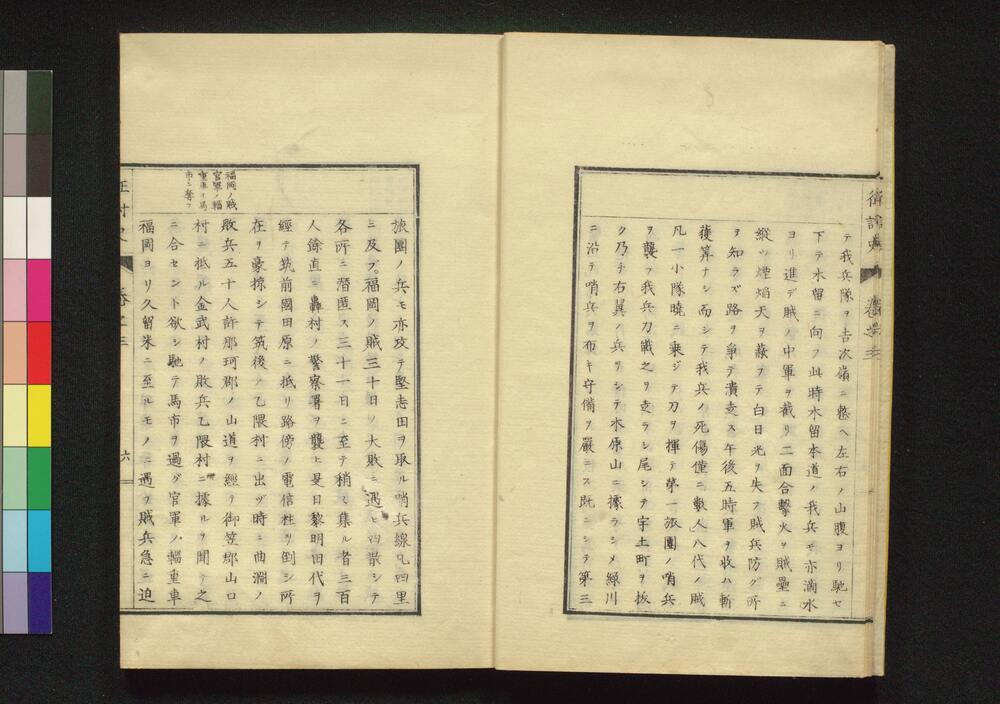 テ我兵隊ヲ吉次嶺ニ整ヘ左右ノ山腹ヨリ馳セ
下テ木留ニ向フ此時木留本道ノ我兵モ亦滴水
ヨリ進デ賊ノ中軍ヲ截リ二面合撃火ヲ賊壘ニ
縦ツ煙焰天ヲ蔽フテ白日光ヲ失フ賊兵防グ所
ヲ知ラズ路ヲ爭テ潰走ス午後五時軍ヲ收ハ斬
獲算ナシ而シテ我兵ノ死傷僅ニ數人八代ノ賊
凡一小隊曉ニ乗ジテ刀ヲ揮テ第一旅團ノ哨兵
ヲ襲フ我兵力戰之ヲ走ラシ尾シテ宇土町ヲ扳
ク乃チ右翼ノ兵ヲシテ木原山ニ據ラシメ緑川
ニ沿テ哨兵ヲ布キ守備ヲ嚴ニス既ニシテ第三
旅團ノ兵モ亦攻テ堅志田ヲ取ル哨兵線凡四里
ニ及ブ福岡ノ賊三十日ノ大敗ニ遇ヒ四散シテ
各所ニ潜匿ス三十一日ニ至テ稍々集ル者三百
人餘直ニ轟村ノ警察署ヲ襲ヒ是日黎明田代ヲ
經テ筑前國田原ニ抵リ路傍ノ電信柱ヲ倒シ所
在ヲ豪掠シテ筑後ノ乙隈村ニ出ヅ時ニ曲淵ノ
敗兵五十人許那珂郡ノ山道ヲ經リ御笠郡山口
村ニ抵ル金武村ノ敗兵乙隈村ニ據ルヲ聞テ之
ニ合セント欲シ馳テ馬市ヲ過グ官軍ノ輜重車
福岡ヨリ久留米ニ至ルモノニ遇ヲ賊兵急ニ迫
福岡ノ賊
官軍ノ輜
重車ヲ馬
市ニ奪フ
六